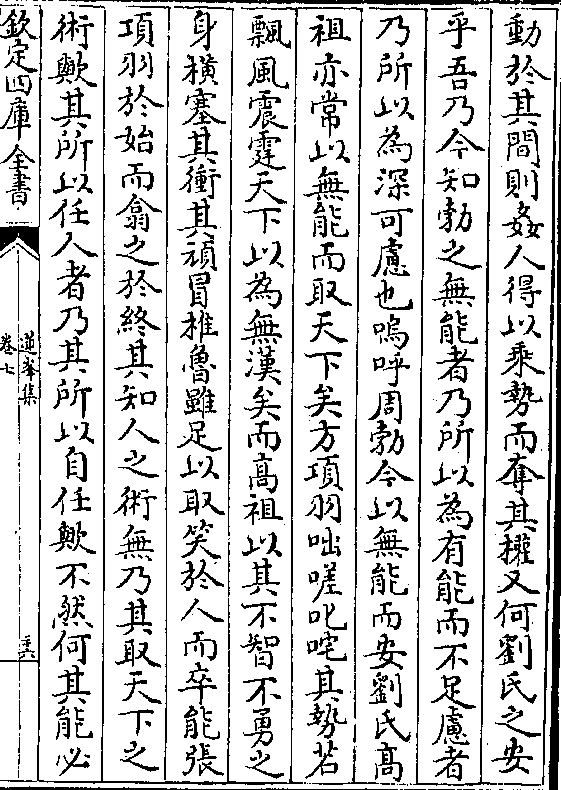 動於其間則姦人得以乘勢而奪其權又何劉氏之安
乎吾乃今知勃之無能者乃所以為有能而不足慮者
乃所以為深可慮也嗚呼周勃今以無能而安劉氏髙
祖亦常以無能而取天下矣方項羽咄嗟叱咤其勢若
飄風震霆天下以為無漢矣而髙祖以其不智不勇之
身横塞其衝其頑冒椎魯雖足以取笑於人而卒能張
項羽於始而翕之於終其知人之術無乃其取天下之
術歟其所以任人者乃其所以自任歟不然何其能必
欽定四庫全書
蓮峯集
卷七